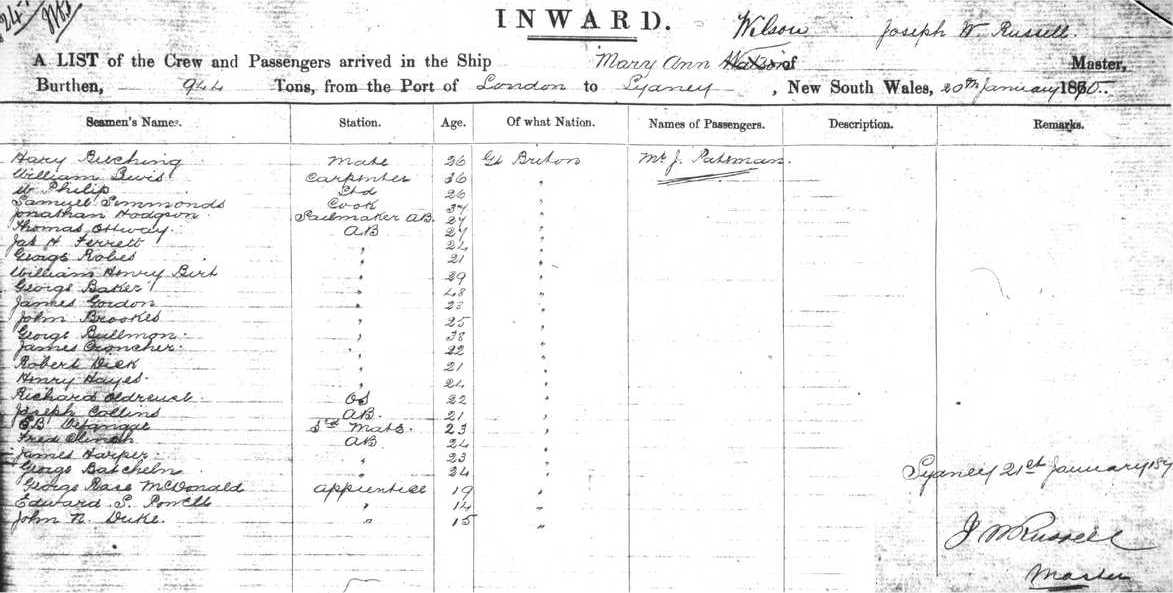 24
INWARD. Wilson Joseph W. Russell.
A LIST of the Crew and Passengers arrived in the Ship Mary Ann of Master,
Burthen, 944 Tons, from the Port of London to Sydney, New South Wales, 20th January 1870.
Seamen's Names. Station. Age. Of what Nation. Names of Passengers. Description. Remarks.
Hary Beeching Mate 26 Gt Briton Mr J. Pateman.
William Lewis Carpenter 36 "
W Philip Std 26 "
Samuel Simmonds Cook 37 "
Jonathan Hodgson Sailmaker AB. 27 "
Thomas Ottway. AB 27 "
Jas H Ferrett " 24 "
George Robes " 21 "
William Henry Birt " 29 "
George Baker " 48 "
James Gordon " 23 "
John Brookes " 25 "
George Bullmon " 38 "
James Croncher " 22 "
Robert Dick " 21 "
Henry Hayes. " 24 "
Richard OS 22 "
Joseph Collins AB. 21 "
EB 3rd Mate. 23 "
Fred Clinch AB 24 "
James Harper. " 23 "
George Batcheln " 24 "
George Rase McDonald apprentice 19 "
Edward S. Powell " 14 "
John N. Duke. " 15 "
Sydney 21st January 187
J W Russell
Master